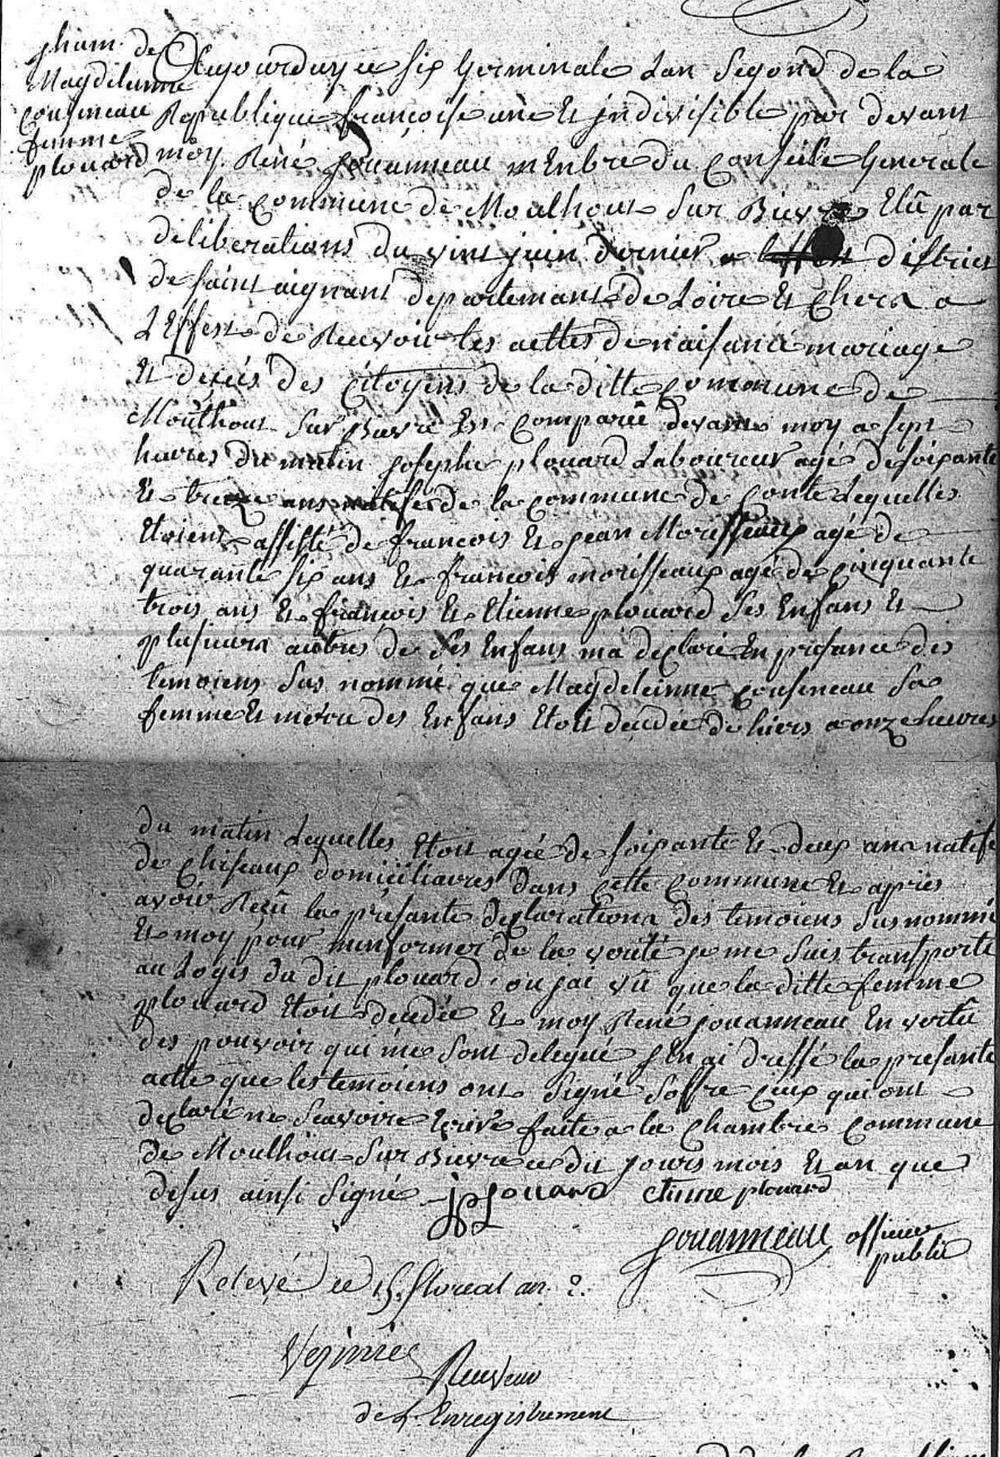 de
Magdeleinne
Cousineau
femme
plouard
Aujourduy ce six Germinale Lan Segond de la
Republique francoise une Et jndivisible par devant
moy René Jouanneau mEnbre du Conseile Generale
de la Commune de Moulhout Sur Buvre Elû par
deliberations du vint juin dernier a district
de saint aignant departemant de Loire Et Chera a
LEffest de Recevoir les acttes de naisance mariage
Et deces des Citoyens de la ditte Commune de
Mouthout Sur Buvre Est Comparûe devant moy a sept
heures du matin Josephe plouard Laboureur agé de soixante
Et treize ans natifes de la commune de Conte Lequelles
Etoient assisté de francois Et Jean Morisseaux agé de
quarante six ans Et francois morisseaux agé de cinquante
trois ans Et francois Et Etienne plouard Ses Enfans Et
plusieura autres de Ses Enfans ma declaré En presance des
temoiens Sus nommé que Magdeleinne Cousineau Sa
femme Et mere des Enfans Etoit decedée de hiers a onze heures
du matin Lequelles Etoit agée de soixante Et deux ans natife
de Chiseaux domiciliaires dans Cette Commune Et apries
avoir Reçû la presante declarationa des temoiens Sus nommé
Et moy pour minformer de la verité je me Suis transporté
au Logis du dit plouard ou jai vû que la ditte femme
plouard Etoit decedée Et moy René Jouanneau En vertû
des pouvoir qui me Sont delegué jEn ai dressé la presante
actte que les temoiens ont Signé Soffre Ceux qui ont
declaré ne Scavoire Ecrire faite a la Chambre Commune
de Moulhout Sur Buvre ce dit jours mois Et an que
desus ainsi Signé J plouard etienne plouard
Jouanneau officier
public
Relevé ce 15 floreal an 2
Receveur
de L'Enregistrement